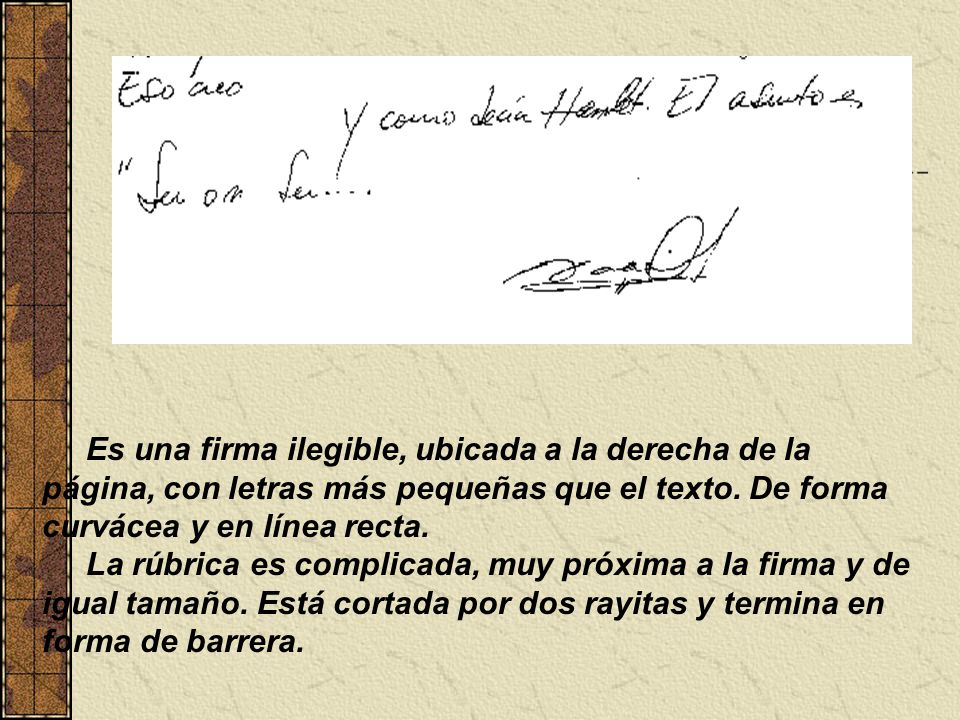 Eso creo
y como decía Hamlet. El asunto es
"Ser o n Ser....
Es una firma ilegible, ubicada a la derecha de la
página, con letras más pequeñas que el texto. De forma
curvácea y en línea recta.
La rúbrica es complicada, muy próxima a la firma y de
igual tamaño. Está cortada por dos rayitas y termina en
forma de barrera.